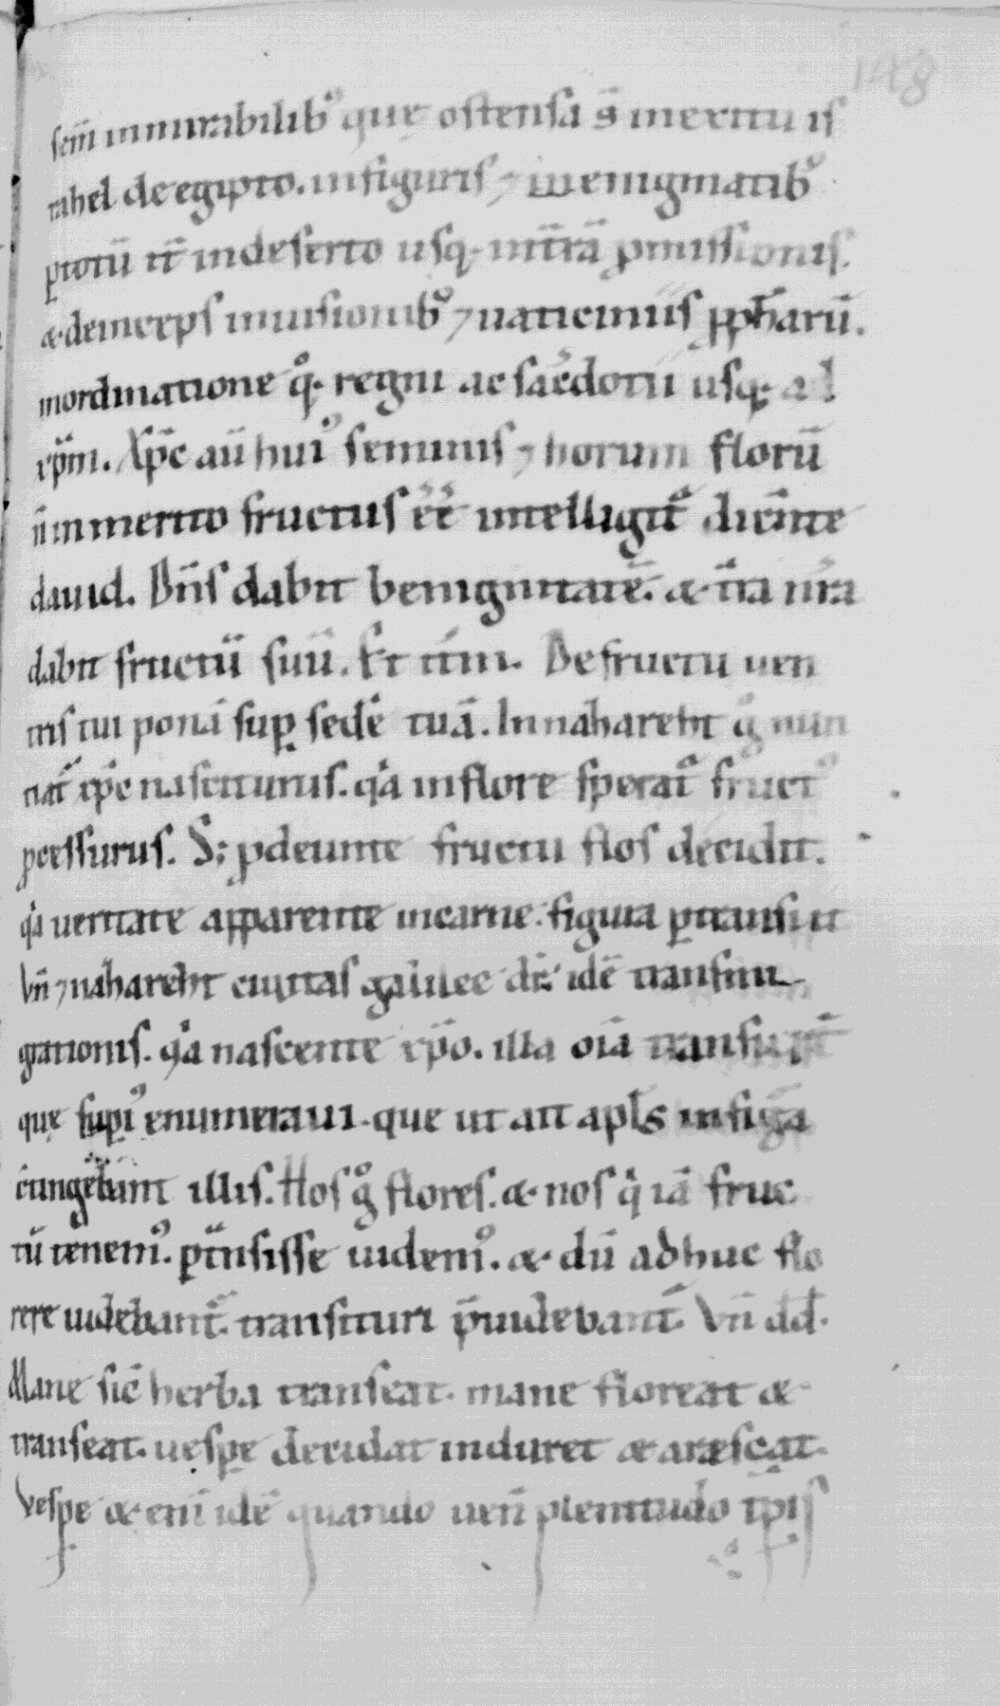 148
sem̄ in mirabilib᷒ que ostensa s̄ in exitu is
rahel de egipto. in figuris ⁊ in enigmatib᷒
ꝑ totū it̄ in deserto usq. in t̄rā ꝓmissionis.
& deinceps in uisionib᷒ ⁊ uaticiniis ꝓph̄arū.
in ordinatione q̊. regni ac sac̄dotii usq. ad
xp̄m. Xp̄c aū hui᷒ seminis ⁊ horum florū
ī inmerito fructus ēē intelligit᷑ dicēnte
dauid. Dn̄s dabit benignitatē. & t̄ra nr̄a
dabit fructū suū. Et itm̄. De fructu uen
tris tui ponā sup sedē tuā. In naharetħ g̊ nun
tiat᷑ xp̄c nasciturus. q̇a in flore sperat᷑ fruct᷒
ꝓcessurus. S; ꝓdeunte fructu flos decidit.
q̇a ueritate apparente in carne. figura ꝑtransiit
Vn̄ ⁊ naharetħ ciuitas galilee dr̄. idē transmi
grationis. q̇a nascente xp̄o. illa oīa transier̄t
quę supi᷒ enumeraui. que ut ait apl̄s in figā
c̄tingebant illis. Hos g̊ flores. & nos q̇ iā fruc
tū tenem᷒. ꝑt̄nsisse uidem᷒. & dū adhuc flo
rere uidebant᷑. transituri p̄uidebant᷑. Vn̄ dd̄.
Mane sic̄ herba transeat. mane floreat &
transeat. uespe decidat induret & arescat.
Vespe & eni idē quando uen̄ plenitudo tp̄is